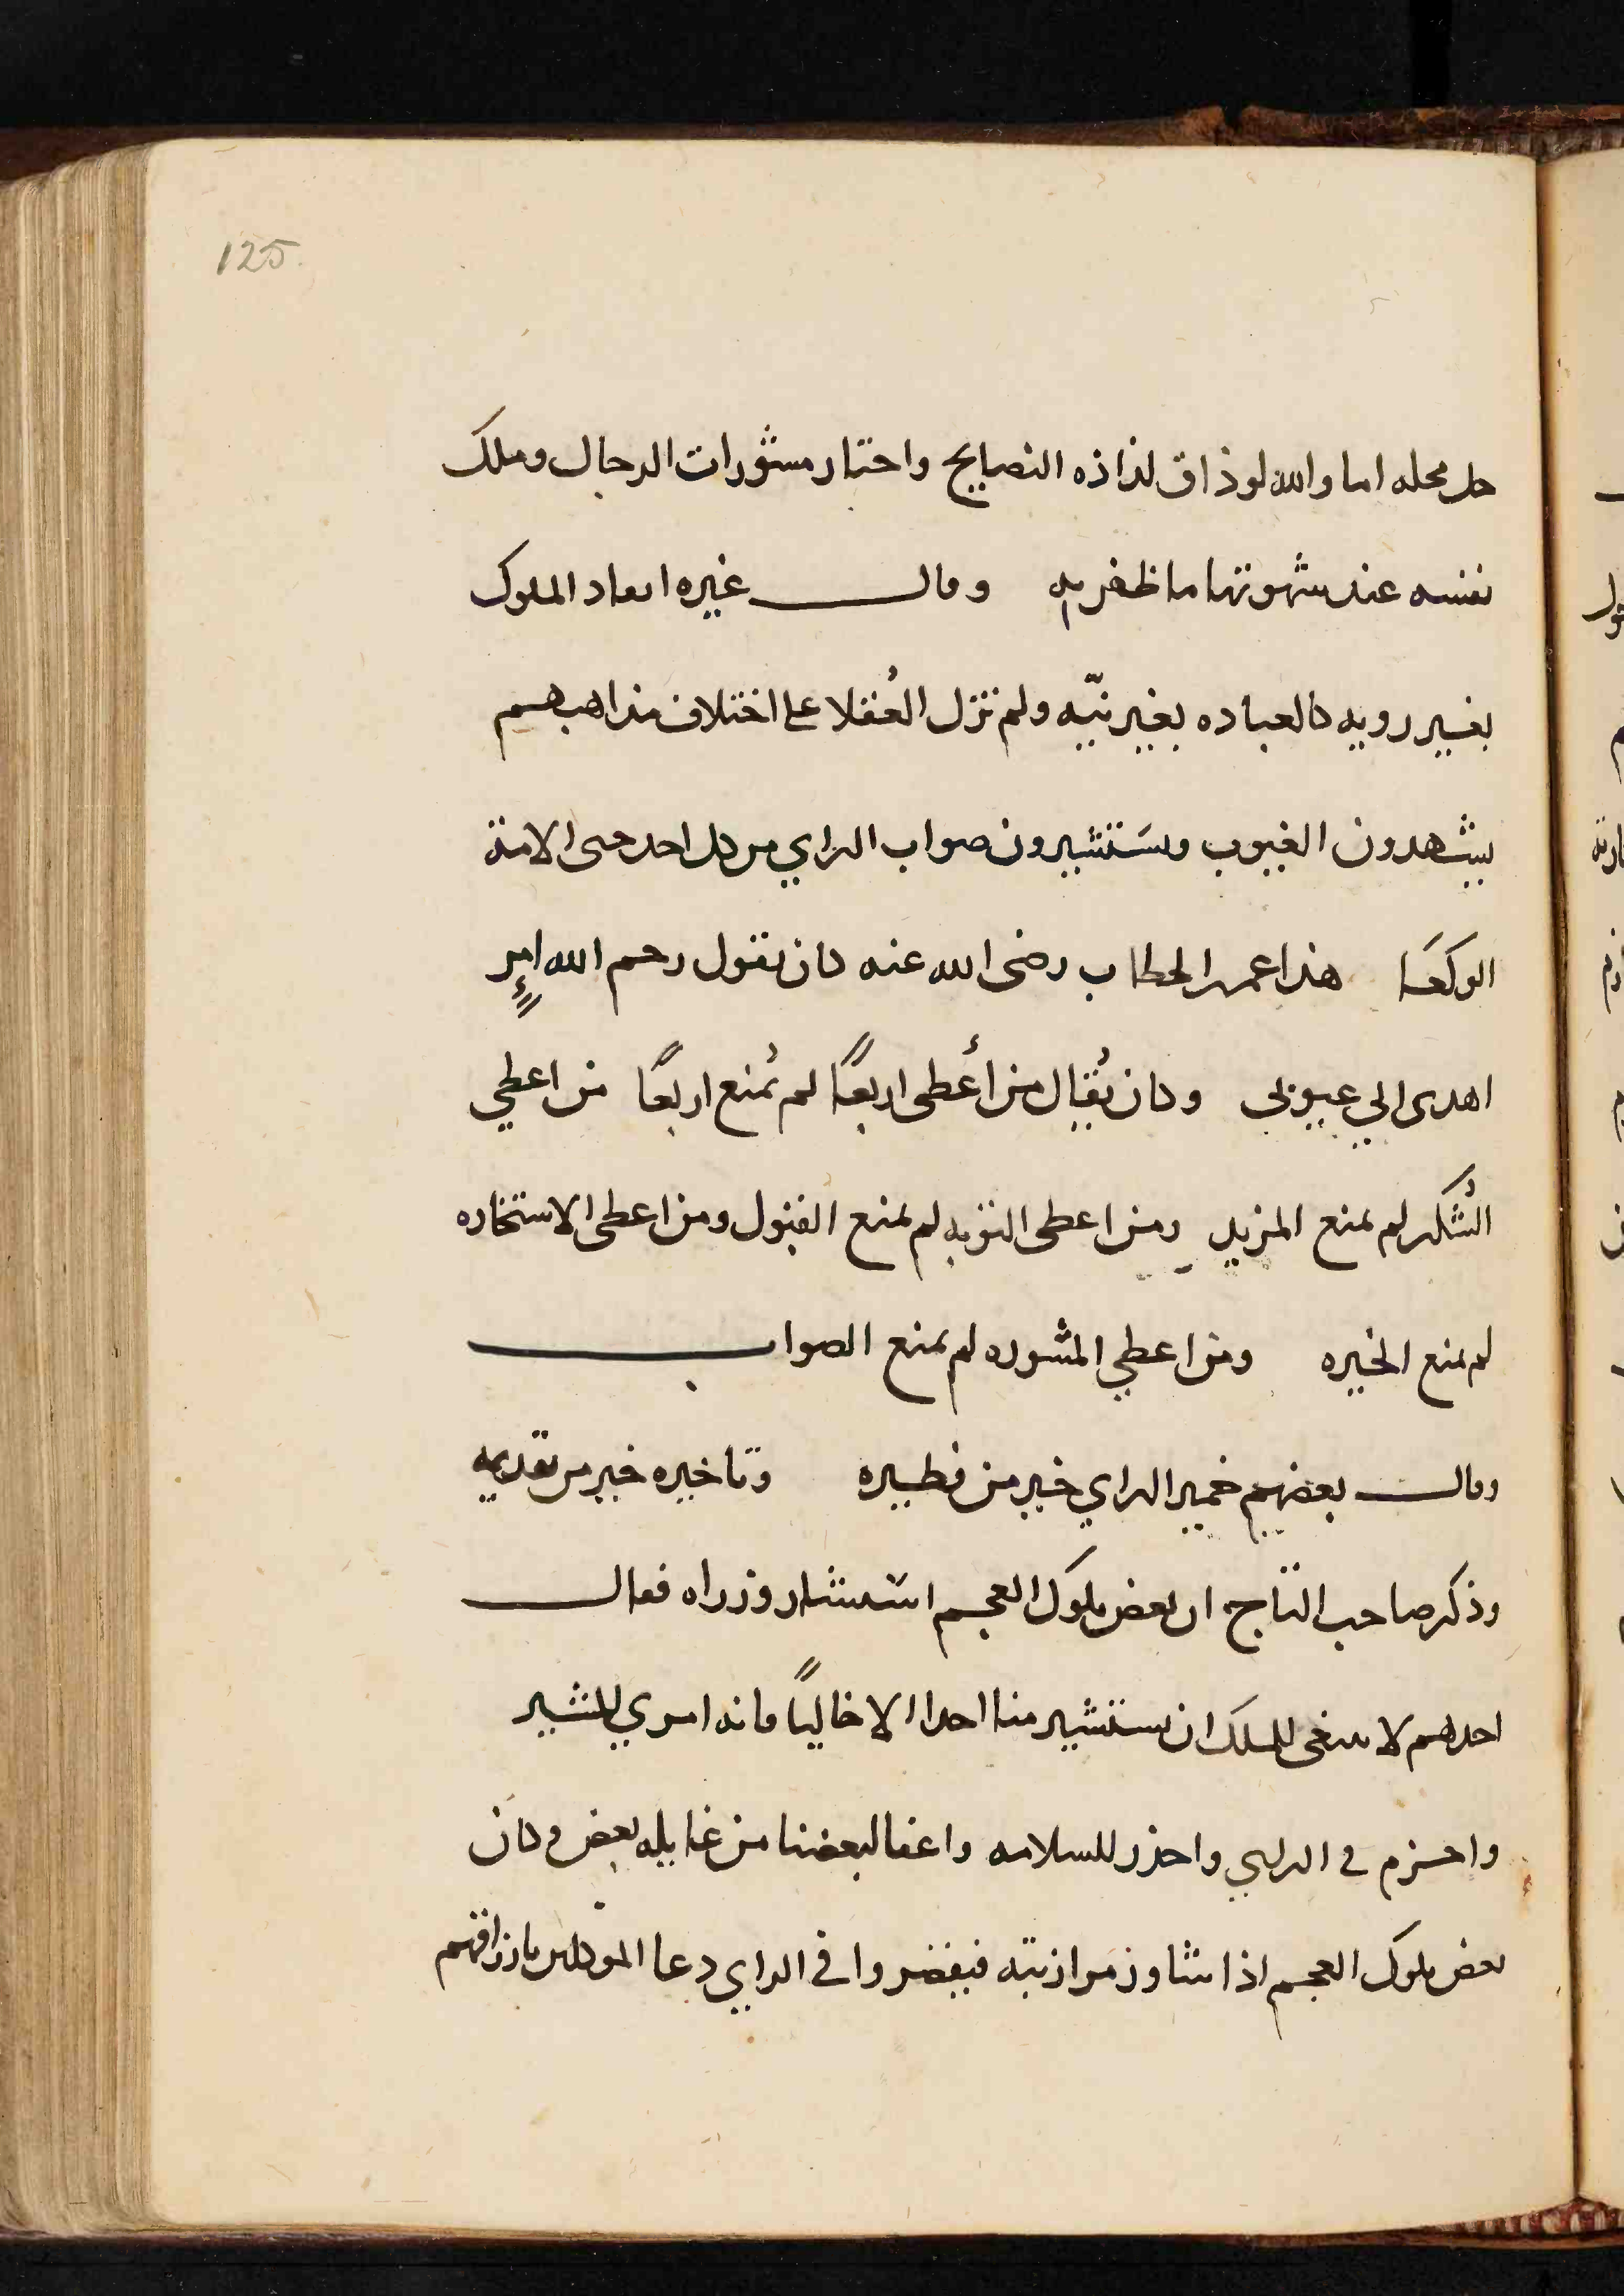 125
حل محله اما والله لو ذاق لذاذه النصايح واختار مشورات الرجال وملك
نفسه عند شهوتها ما ظفر به وقال غيره الملوك
بغير رويه كالعباده بغير نيّه ولم تزل العُقلا على اختلاف مذاهبهم
يشهدون العيوب ويسَتشيرون صواب الراي من كل احد حتى الامة
الوكعَا هذا عمر الخطاب رضى الله عنه كان يقول رحم الله امرءٍ
اهدى الي عيوبي وكان يُقال من أُعطى اربعًا لم يُمنع اربعًا من اعطي
الشُكر لم يمنع المزيد ومن اعطى التوبه لم يمنع القبول ومن اعطى الاستخاره
لم يمنع الخيره ومن اعطي المشوره لم يمنع الصواب
وقال بعضهم خمير الراي خير من فطيره وتاخيره خير من تقديمه
وذكر صاحب التاج ان بعض ملوك العجم استشار وزراه فقال
احدهم لا ينبغى للملك ان يستشير منا احدا الا خاليًا فانه للسر
واحزم في الراي واحذر للسلامه واعفا لبعضنا من غايله بعض وكان
بعض ملوك العجم اذا شاور مرازبته فيقضروا في الراي دعا الموكلين بارزاقهم